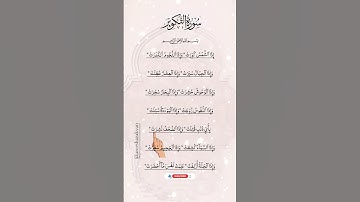 سُورَةُ التَّكْوِيرِ
بِسْمِ اللَّهِ الرَّحْمَٰنِ الرَّحِيمِ
إِذَا الشَّمْسُ كُوِّرَتْ وَإِذَا النُّجُومُ انْكَدَرَتْ
وَإِذَا الْجِبَالُ سُيِّرَتْ وَإِذَا الْعِشَارُ عُطِّلَتْ
وَإِذَا الْوُحُوشُ حُشِرَتْ وَإِذَا الْبِحَارُ سُجِّرَتْ
وَإِذَا النُّفُوسُ زُوِّجَتْ وَإِذَا الْمَوْءُودَةُ سُئِلَتْ
بِأَيِّ ذَنْبٍ قُتِلَتْ وَإِذَا الصُّحُفُ نُشِرَتْ
وَإِذَا السَّمَاءُ كُشِطَتْ وَإِذَا الْجَحِيمُ سُعِّرَتْ
وَإِذَا الْجَنَّةُ أُزْلِفَتْ عَلِمَتْ نَفْسٌ مَا أَحْضَرَتْ